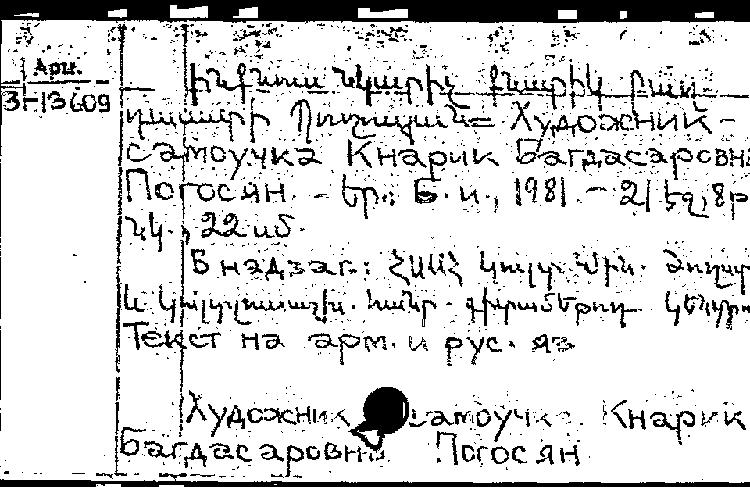 Арм.
3-13609
Ինքնուս նկարիչ Քնարիկ Բաղ-
դասարի Պողոսյան = Художник-
самоучка Кнарик Багдасаровна
Погосян. - Եր.: Б. и., 1981. - 21 էջ, 8 թ
նկ.; 22 սմ.
В надзаг.: ՀՍՍՀ կուլտ. մին. Ժողար
և կուլտլուսաշխ. հանր. գիտամեթոդ կենտրո
Текст на арм. и рус. яз
Художник самоучка Кнарик
Багдасаровна Погосян